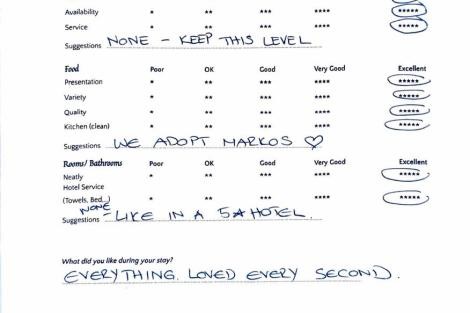 Availability * ** *** **** *****
Service * ** *** **** *****
Suggestions NONE - KEEP THIS LEVEL
Food Poor OK Good Very Good Excellent
Presentation * ** *** **** *****
Variety * ** *** **** *****
Quality * ** *** **** *****
Kitchen (clean) * ** *** **** *****
Suggestions WE ADOPT MARKOS ♡
Rooms/ Bathrooms Poor OK Good Very Good Excellent
Neatly * ** *** **** *****
Hotel Service
(Towels, Bed...) * ** *** **** *****
NONE
Suggestions - LIKE IN A 5* HOTEL.
What did you like during your stay?
EVERYTHING. LOVED EVERY SECOND.